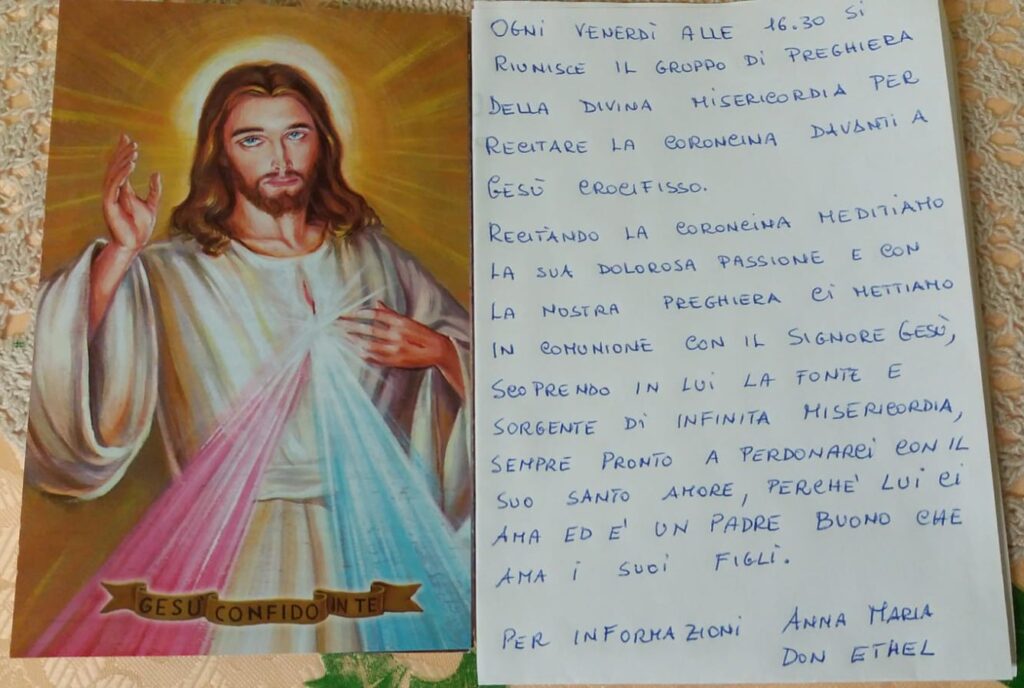 GESÙ CONFIDO IN TE
OGNI VENERDÌ ALLE 16.30 SI
RIUNISCE IL GRUPPO DI PREGHIERA
DELLA DIVINA MISERICORDIA PER
RECITARE LA CORONCINA DAVANTI A
GESÙ CROCIFISSO.
RECITANDO LA CORONCINA MEDITIAMO
LA SUA DOLOROSA PASSIONE E CON
LA NOSTRA PREGHIERA CI METTIAMO
IN COMUNIONE CON IL SIGNORE GESÙ,
SCOPRENDO IN LUI LA FONTE E
SORGENTE DI INFINITA MISERICORDIA,
SEMPRE PRONTO A PERDONARCI CON IL
SUO SANTO AMORE, PERCHE' LUI CI
AMA ED E' UN PADRE BUONO CHE
AMA I SUOI FIGLI.
PER INFORMAZIONI ANNA MARIA
DON ETHEL